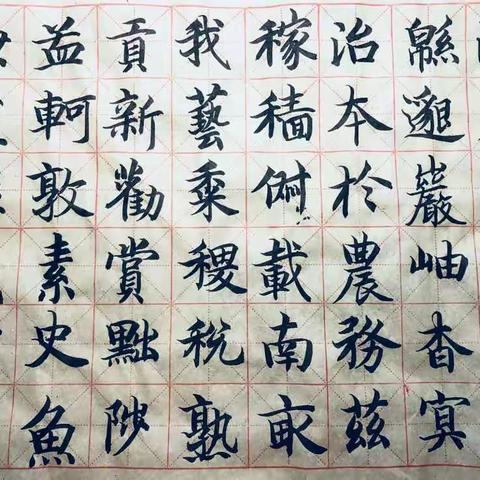 緜邈巖岫杳冥
治本於農務茲
稼穡俶載南畝
我藝黍稷稅熟
貢新勸賞黜陟
孟軻敦素史魚